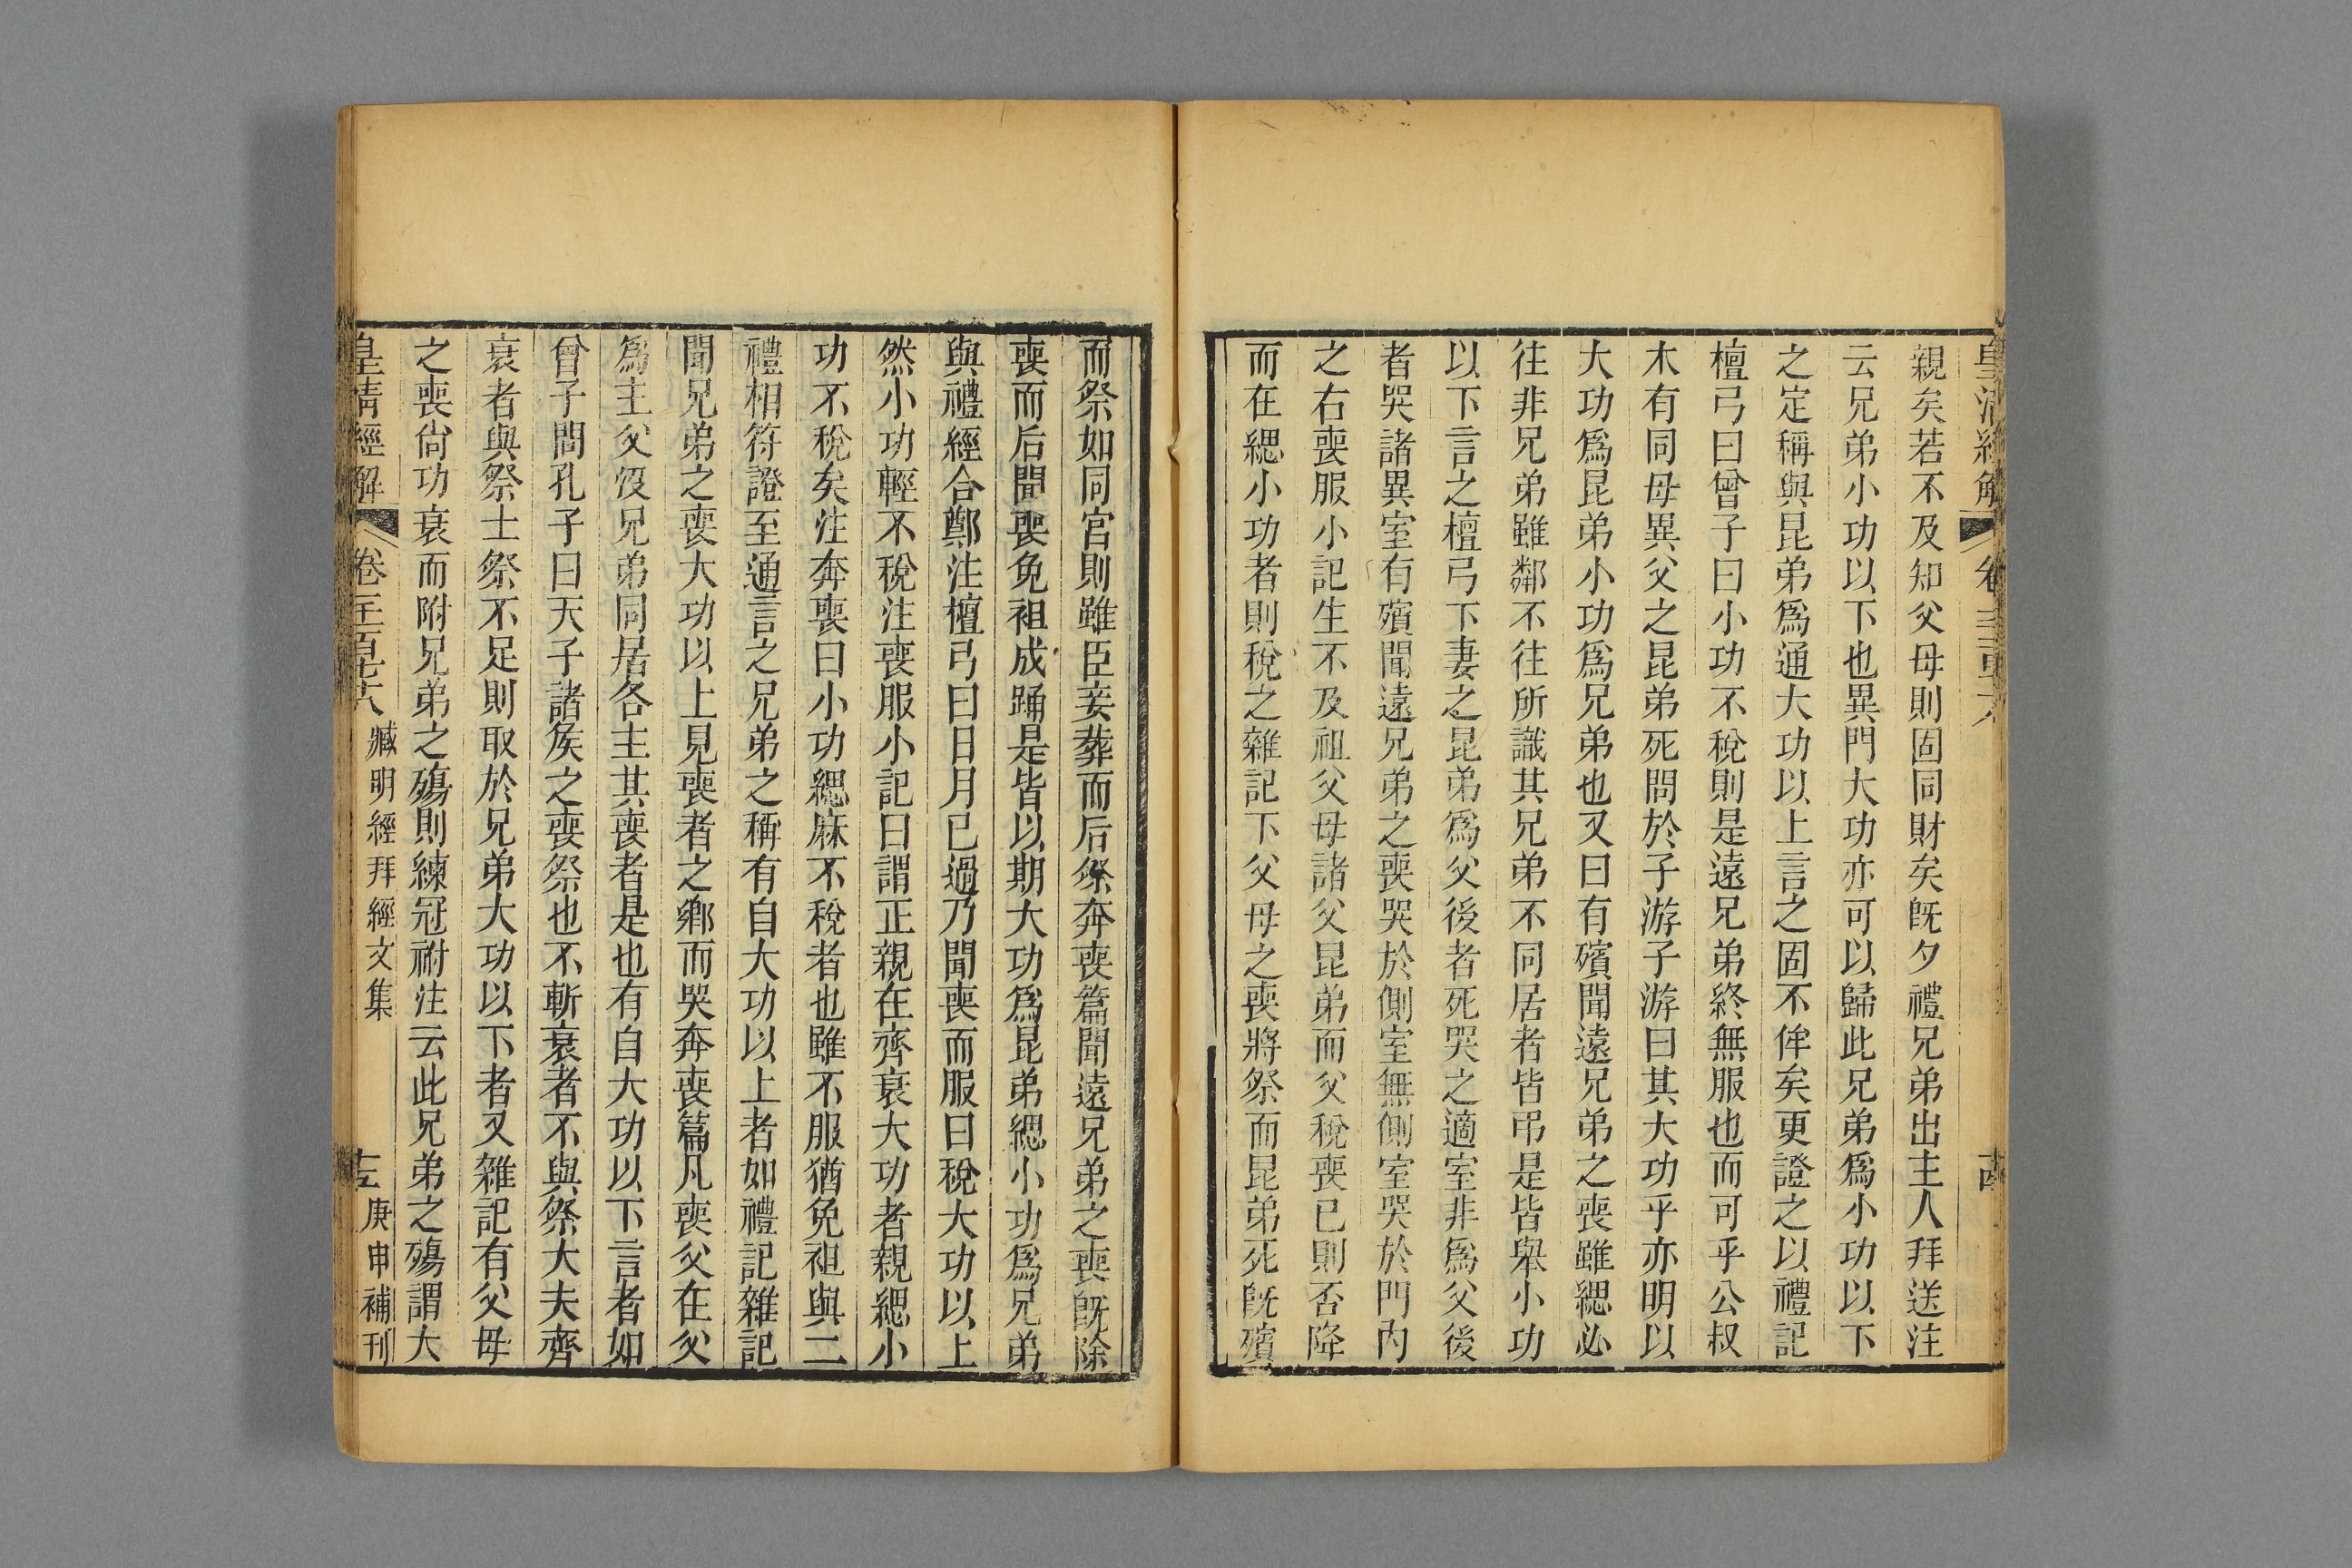 親矣若不及知父母則固同財矣旣夕禮兄弟出主人拜送注
云兄弟小功以下也異門大功亦可以歸此兄弟爲小功以下
之定稱與昆弟爲通大功以上言之固不侔矣更證之以禮記
檀弓曰曾子曰小功不稅則是遠兄弟終無服也而可乎公叔
木有同母異父之昆弟死問於子游子游曰其大功乎亦明以
大功爲昆弟小功爲兄弟也又曰有殯聞遠兄弟之喪雖緦必
往非兄弟雖鄰不往所識其兄弟不同居者皆弔是皆舉小功
以下言之檀弓下妻之昆弟爲父後者死哭之適室非爲父後
者哭諸異室有殯聞遠兄弟之喪哭於側室無側室哭於門內
之右喪服小記生不及祖父母諸父昆弟而父稅喪已則否降
而在緦小功者則稅之雜記下父母之喪將祭而昆弟死旣殯
而祭如同宮則雖臣妾葬而后祭奔喪篇聞遠兄弟之喪旣除
喪而后聞喪免袒成踊是皆以期大功爲昆弟緦小功爲兄弟
與禮經合鄭注檀弓曰日月已過乃聞喪而服曰稅大功以上
然小功輕不稅注喪服小記曰謂正親在齊衰大功者親緦小
功不稅矣注奔喪曰小功緦麻不稅者也雖不服猶免袒與二
禮相符證至通言之兄弟之稱有自大功以上者如禮記雜記
聞兄弟之喪大功以上見喪者之鄉而哭奔喪篇凡喪父在父
爲主父沒兄弟同居各主其喪者是也有自大功以下言者如
曾子問孔子曰天子諸侯之喪祭也不斬衰者不與祭大夫齊
衰者與祭士祭不足則取於兄弟大功以下者又雜記有父母
之喪尙功衰而附兄弟之殤則練冠祔注云此兄弟之殤謂大
皇清經解
卷一千一百七十八
臧明經拜經文集
十五
庚申補刊